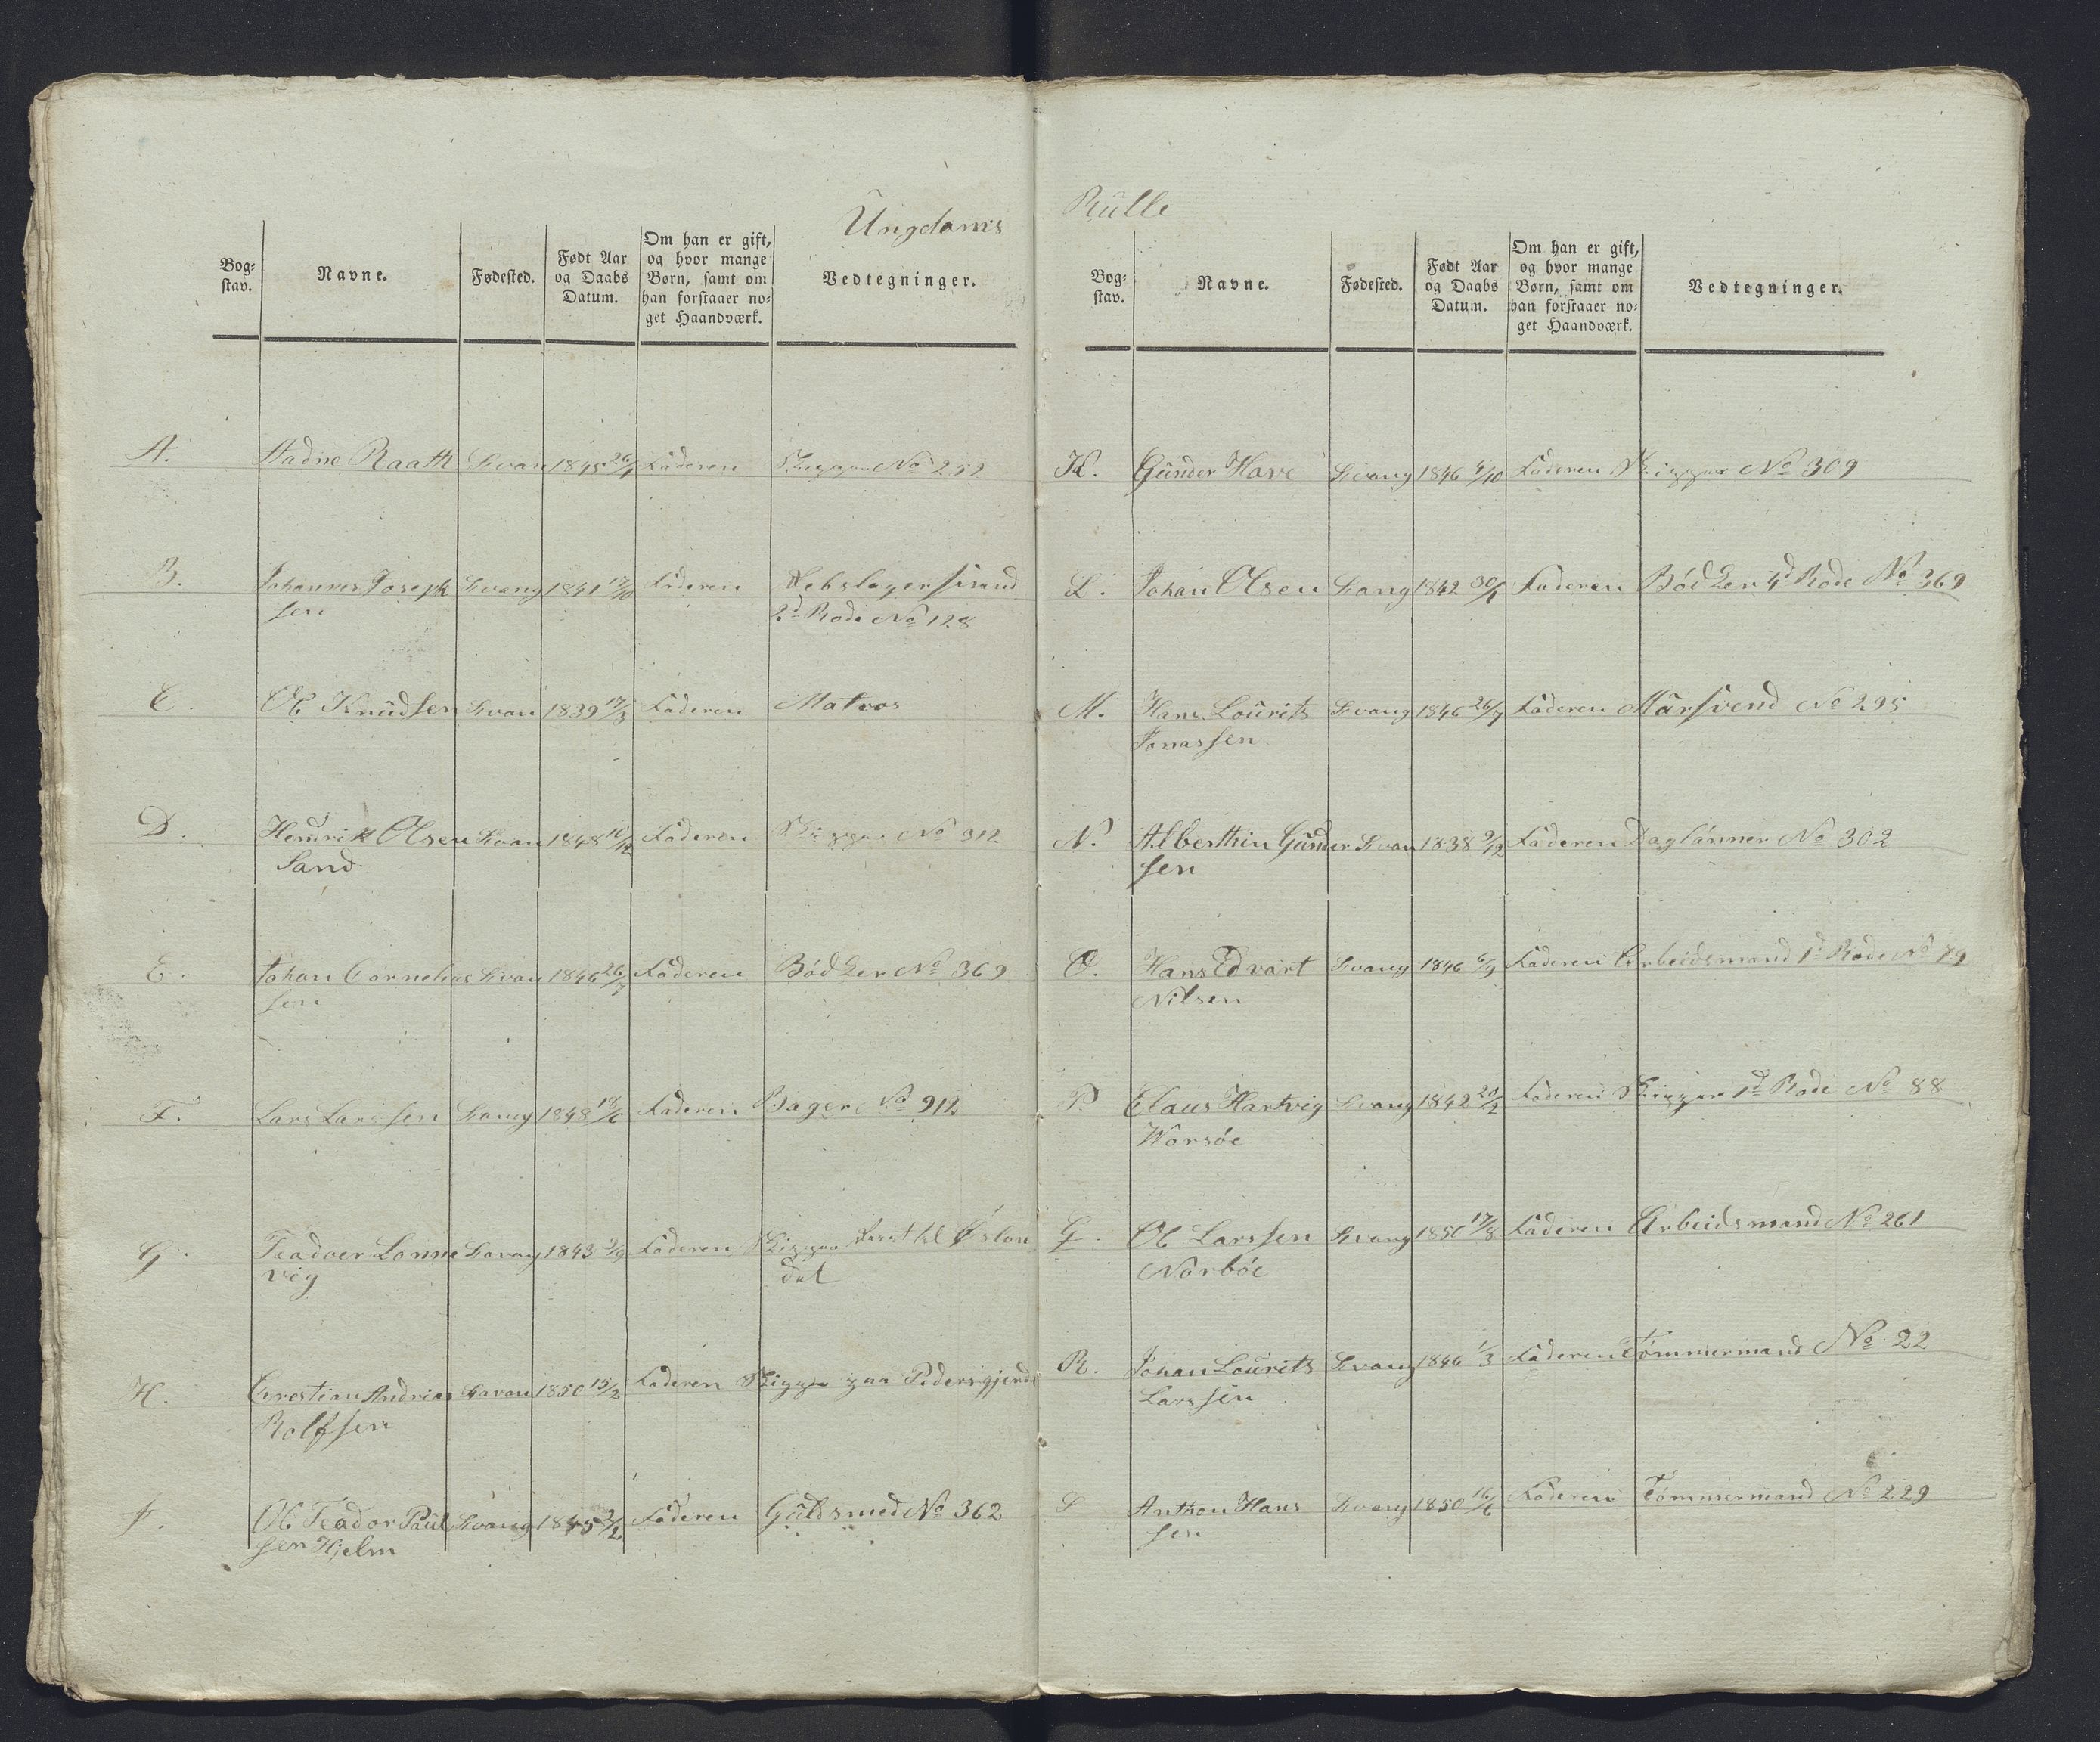 Ungdoms
Bog-
stav.
Navne.
Fødested.
Født Aar
og Daabs
Datum.
Om han er gift,
og hvor mange
Børn, samt om
han forstaaer no-
get Haandværk.
Vedtegninger.
A. Aadne Raath Svan 1845 26/1 Faderen Skipper No 252
B. Johannes Joseph Svang 1841 17/10 Faderen Rebslagersvend
sen 2d Rode No 128
C. Ole Knudsen Svan 1839 17/3 Faderen Matros
D. Hendrik Olsen Svan 1848 10/12 Faderen Skipper No 312
Sand
E. Johan Cornelius Svan 1846 26/7 Faderen Bødker No 369
sen
F. Lars Larssen Svang 1848 18/6 Faderen Bager No 912
G. Teadoer Lonne Savang 1843 9/9 Faderen Skipper
vig dal
H. Crestian Andrias Savan 1850 15/2 Faderen Skipper paa Pedersgjerde
Rolfsen
J. Ole Teador Paul Svang 1845 2/2 Faderen Guldsmed No 362
sen Hjelm
Rulle
Bog-
stav.
Navne.
Fødested.
Født Aar
og Daabs
Datum.
Om han er gift,
og hvor mange
Børn, samt om
han forstaaer no-
get Haandværk.
Vedtegninger.
K. Gunder Have Svang 1846 4/10 Faderen Skipper No 309
L. Johan Olsen Sang 1842 30/1 Faderen Bødker 4d Rode No 369
M. Hans Lourits Svang 1846 26/7 Faderen Mursvend No 295
Jonassen
N. Alberthin Gunder Svan 1838 9/12 Faderen Daglønner No 302
sen
O. Hans Edvart Svang 1846 6/9 Faderen Arbeidsmand 1d Rode No 79
Nilsen
P. Claus Hartvig Svang 1842 20/2 Faderen Skipper 1d Rode No 88
Worsøe
Q. Ole Larssen Svang 1850 17/8 Faderen Arbeidsmand No 261
Norbøe
R. Johan Lourits Svang 1846 1/3 Faderen Tømmermand No 22
Larssen
S Anthon Hans Svang 1850 16/6 Faderen Tømmermand No 229
sen